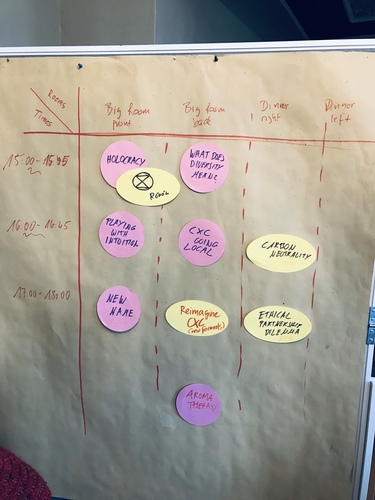 ROOMS
TIMES
Big Room
front
Big Room
back
Dinner
right
Dinner
left
15:00-15:45
HOLOCRACY
WHAT DOES
DIVERSITY
MEAN?
16:00-16:45
PLAYING
WITH
INTUITION
CXC
GOING
LOCAL
CARBON
NEUTRALITY
17:00-18:00
NEW
NAME
Reimagine
CXC
(new formats)
ETHICAL
PARTNERSHIP
DILEMMA
AROMA